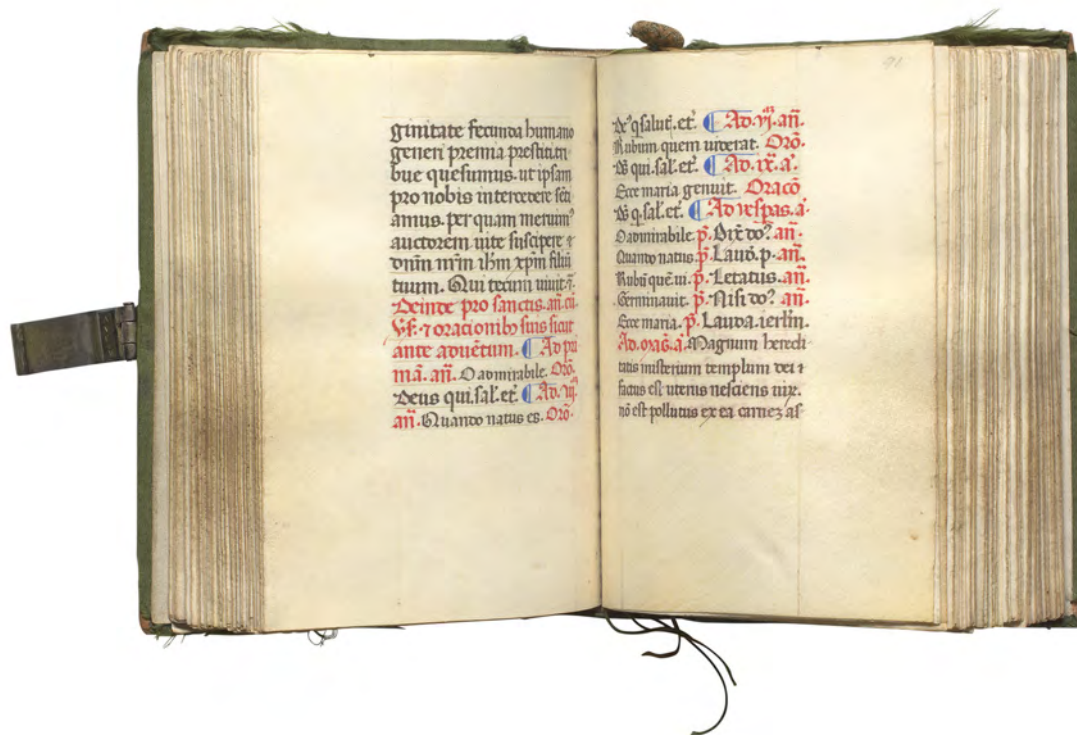 ginitate fecunda humano
generi premia prestitisti
bue quesumus. ut ipsam
pro nobis intercedere sēti
amus. per quam meruimꝰ
auctorem uite suscipere ⁊
dnm̄ nr̄m ihm̄ xp̄m filiū
tuum. Qui tecum uiuit ⁊.
Deinde pro sanctis. an̄. cū
⁊ oracionibꝫ suis sicut
ante aduētum. ¶ Ad pri
mā. an̄. O admirabile. Orō.
Deus qui. sal̄. et.̄ ¶ Ad. iij.
an̄. Quando natus es. Orō.
91
q̄ salut̄. et.̄ ¶ Ad. vj. an̄.
Rubum quem uiderat. Orō.
Ds̄ qui. sal̄. et.̄ ¶ Ad. ix. a.̄
Ecce maria genuit. Oracō
Ds̄ q. sal̄. et.̄ ¶ Ad vesp̄as. a.̄
O admirabile. p̄. Dix̄ doꝰ. an̄.
Quando natus. p̄. Laud̄. p. an̄.
Rubū quē ui. p̄. Letatus. an̄.
Germinauit. p̄. Nisi doꝰ. an̄.
Ecce maria. p̄. Lauda. ierl̄m.
Ad. maḡ. a.̄ Magnum heredi
tatis misterium templum dei ⁊
factus est uterus nesciens uir.
nō est pollutus ex ea carneꝫ as